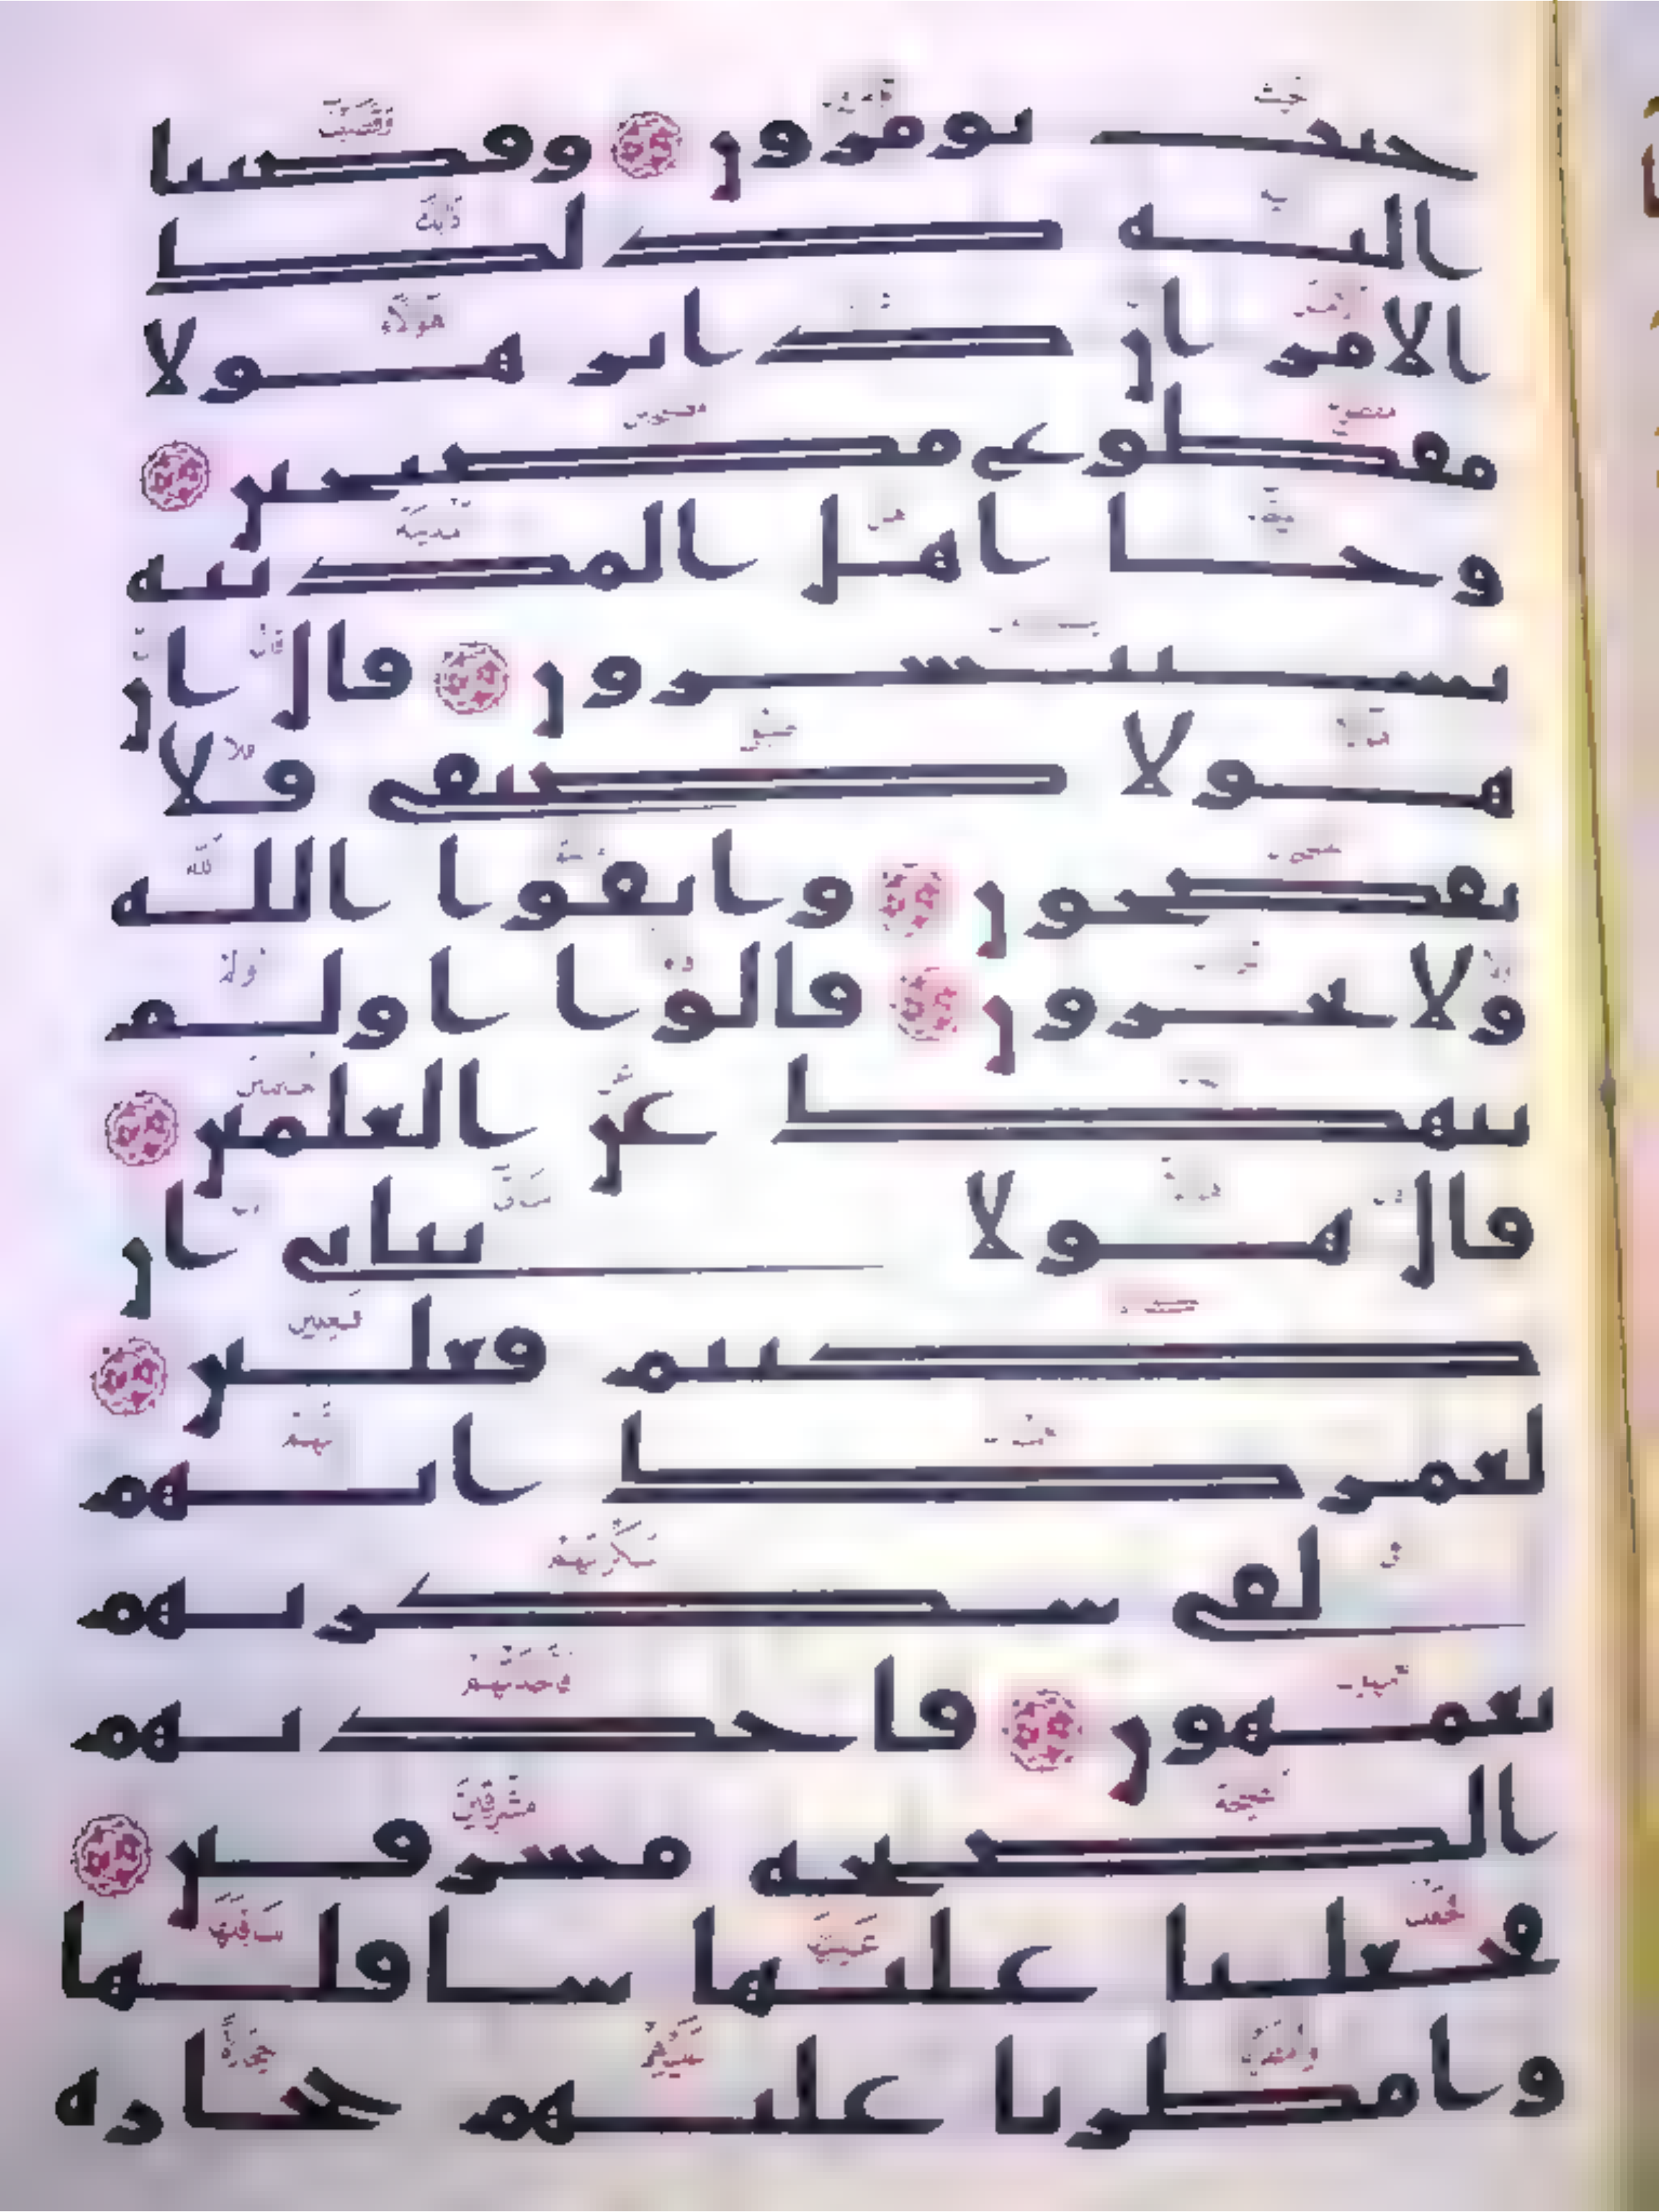 حيث تومرون وقضينا
اليه ذلك
الامر ان دابر هولا
مقطوع مصبحين
وجا اهل المدينه
يستبشرون قال ان
هولا ضيفى فلا
تفضحون واتقوا الله
ولا تخزون قالوا اولم
ننهك عن العلمين
قال هولا بناتى ان
كنتم فعلين
لعمرك انهم
لفى سكرتهم
يعمهون فاخذتهم
الصيحه مشرقين
فجعلنا عليها سافلها
وامطرنا عليهم حجاره